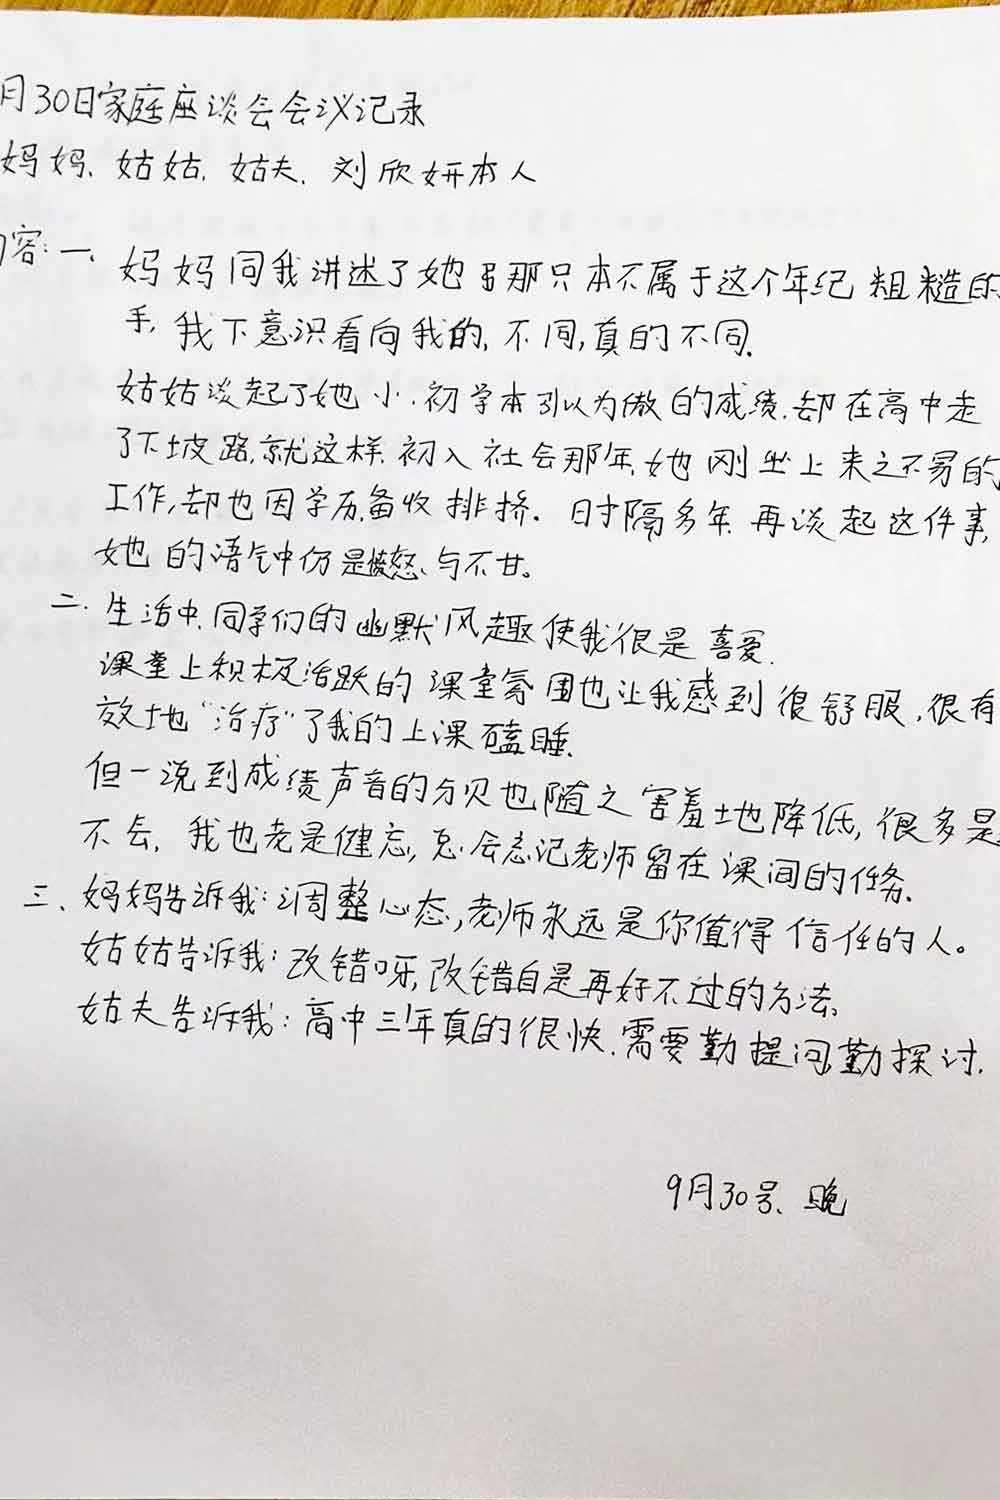 月30日家庭座谈会会议记录
妈妈、姑姑、姑夫、刘欣妍本人
内容：一、妈妈同我讲述了她那只本不属于这个年纪粗糙的
手，我下意识看向我的，不同，真的不同。
姑姑谈起了她小、初学本引以为傲的成绩，却在高中走
了下坡路，就这样，初入社会那年，她刚坐上来之不易的
工作，却也因学历备收排挤。时隔多年，再谈起这件事，
她的语气中仍是愤怒、与不甘。
二、生活中，同学们的幽默风趣使我很是喜爱。
课堂上积极活跃的课堂氛围也让我感到很舒服，很有
效地“治疗”了我的上课瞌睡。
但一说到成绩声音的分贝也随之害羞地降低，很多是
不会，我也老是健忘，总会忘记老师留在课间的任务。
三、妈妈告诉我：调整心态，老师永远是你值得信任的人。
姑姑告诉我：改错呀，改错自是再好不过的方法。
姑夫告诉我：高中三年真的很快，需要勤提问，勤探讨。
9月30号、晚